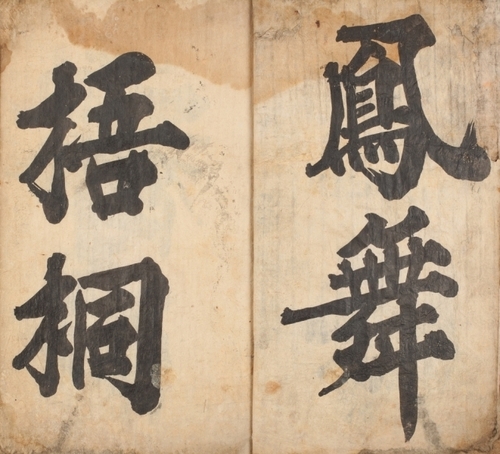 鳳舞
梧桐